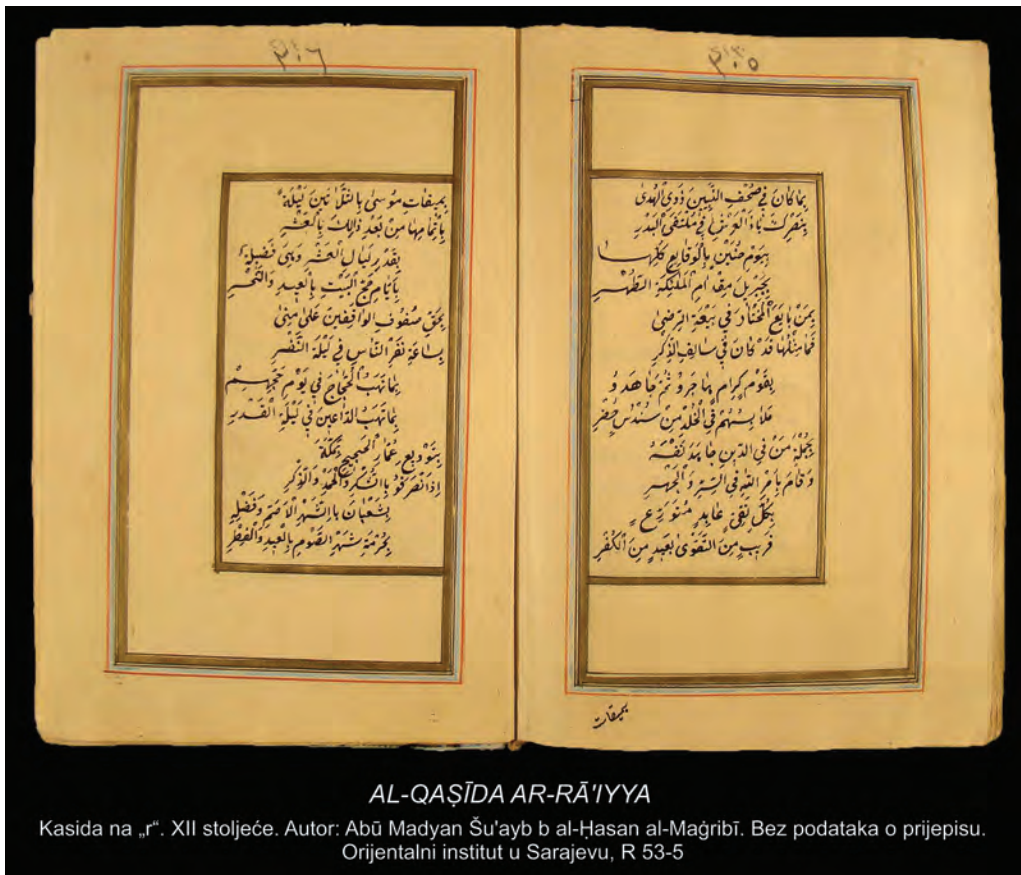 بِمَا كَانَ فِي صُحُفِ النَّبِيِّينَ ذَوِي الْهُدَى
بِنَصْرِكَ يَا ذَا الْعَرْشِ فِي مُلْتَقَى الْبَدْرِ
بِيَوْمِ حُنَيْنٍ بِالْوَقَايِعِ كُلِّهَا
بِجِبْرِيلَ مِقْدَامِ الْمَلٰئِكَةِ
بِمَنْ بَايَعَ الْمُخْتَارَ فِي بَيْعَةِ الرِّضَى
فَمَا مِثْلُهَا قَدْ كَانَ فِي سَالِفِ الذِّكْرِ
بِقَوْمٍ كِرَامٍ هَاجَرُو ثُمَّ جَاهَدُو
مَلَابِسُهُمْ فِي الْخُلْدِ مِنْ سُنْدُسٍ خُضْرِ
بِجُمْلَةِ مَنْ فِي الدِّينِ جَاهَدَ نَفْسَهُ
وَقَامَ بِأَمْرِ اللهِ فِي السِّرِّ وَالْجَهْرِ
بِكُلِّ تَقِيٍّ عَابِدٍ مُتَوَرِّعٍ
قَرِيبٍ مِنَ التَّقْوَى بَعِيدٍ مِنَ الْكُفْرِ
بميقات
بِمِيقَاتِ مُوسَى بِالثَّلَاثِينَ لَيْلَةً
بِإِتْمَامِهَا مِنْ بَعْدِ ذَالِكَ بِالْعَشْرِ
بِقَدْرِ لَيَالِ الْعَشْرِ وَهِيَ فَضِيلَةٌ
بِأَيَّامِ حَجِّ الْبَيْتِ بِالْعِيدِ وَالنَّحْرِ
بِحَقِّ صُفُوفِ الْوَاقِفِينَ عَلَى مِنًى
بِسَاعَةِ نَفْرِ النَّاسِ فِي لَيْلَةِ النَّفْرِ
بِمَا تَهَبُ الْحُجَّاجَ فِي يَوْمِ حَجِّهِمْ
بِمَا تَهَبُ الدَّاعِينَ فِي لَيْلَةِ الْقَدْرِ
بِتَوْدِيعِ الْحَجِيجِ بِمَكَّةَ
إِذَا نْصَرَفُو بِالشُّكْرِ وَالْحَمْدِ وَالذِّكْرِ
بِشَعْبَانَ بِالشَّهْرِ الْأَصَمِّ وَفَضْلِهِ
بِحُرْمَةِ شَهْرِ الصَّوْمِ بِالْعِيدِ وَالْفِطْرِ
AL-QAṢĪDA AR-RĀ'IYYA
Kasida na „r“. XII stoljeće. Autor: Abū Madyan Šu'ayb b al-Ḥasan al-Maġribī. Bez podataka o prijepisu.
Orijentalni institut u Sarajevu, R 53-5